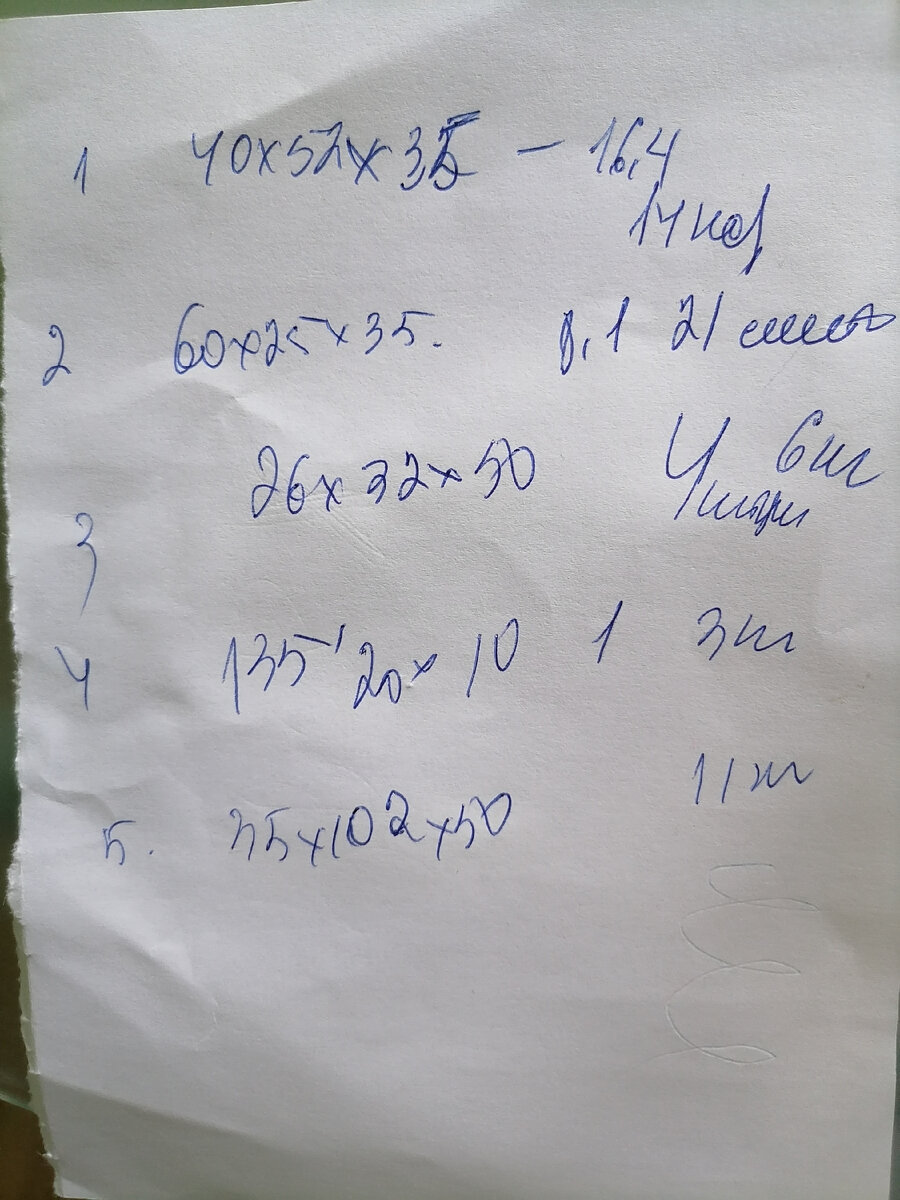 1 40x52x35 - 16,4
14 кор
2 60x25x35. 8,1 21
26x32x50 4 6 кг
3
4 135x20x10 1 3 кг
11 кг
5. 35x102x50